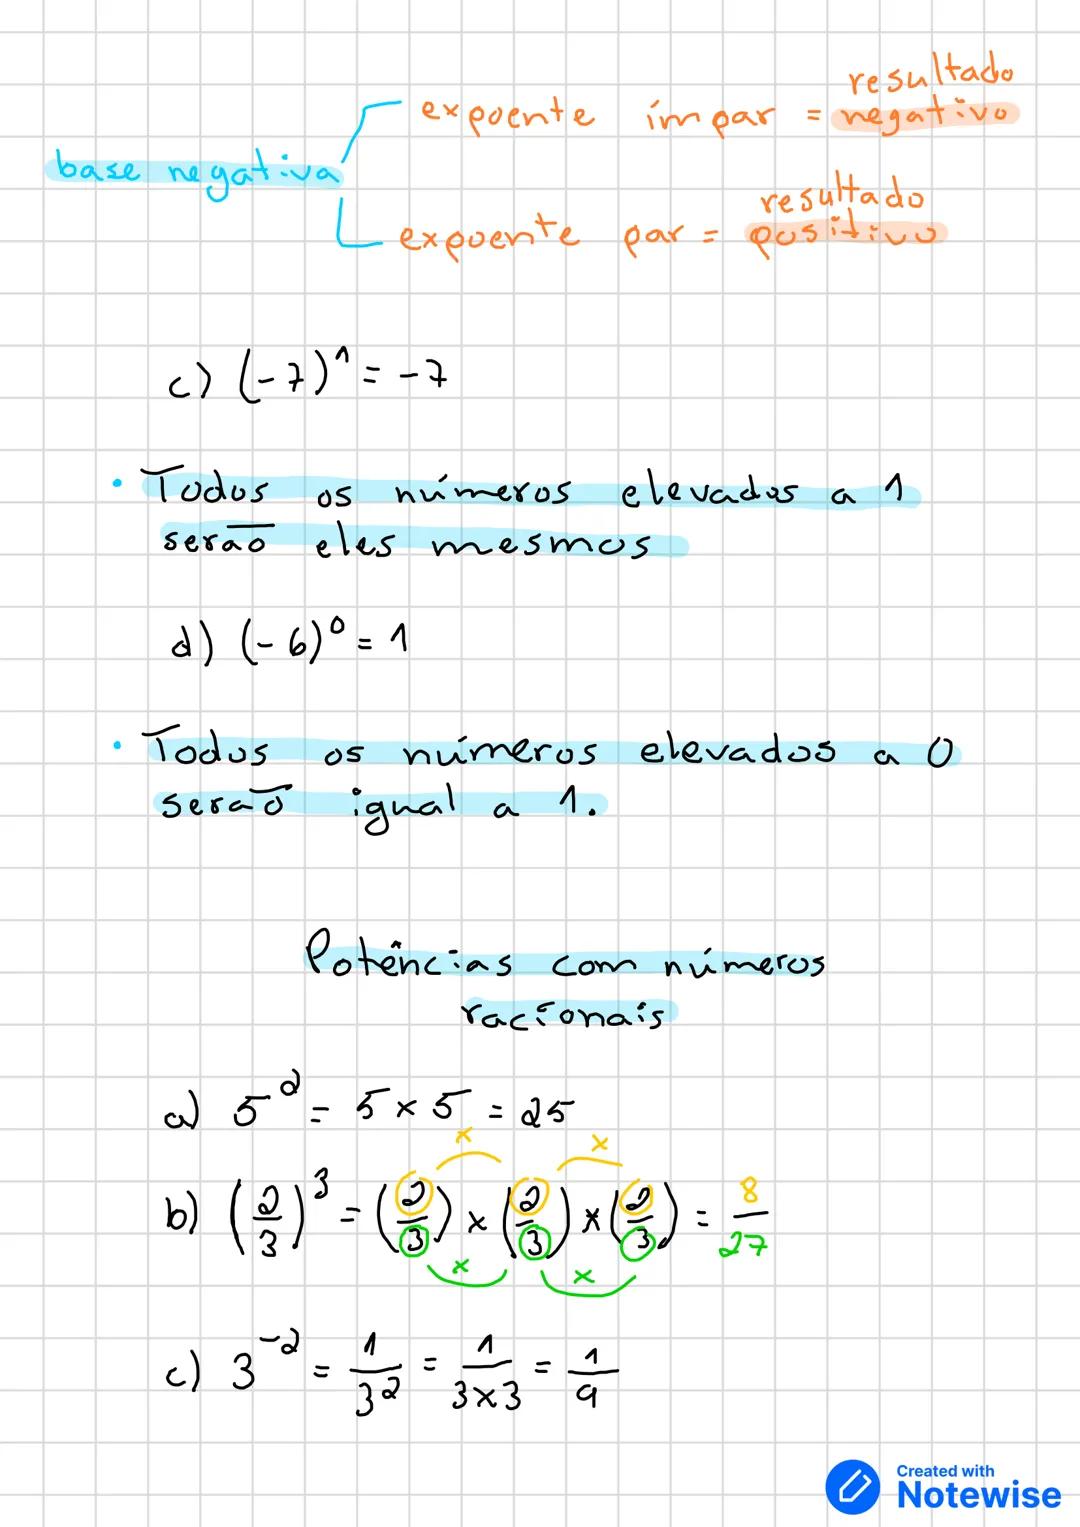 resultado
expoente ímpar = negativo
base negativa
resultado
expoente par = positivo
c) (-7)¹ = -7
• Todos os números elevados a 1
serão eles mesmos
d) (-6)⁰ = 1
• Todos os números elevados a 0
serão igual a 1.
Potências com números
racionais
a) 5² = 5 × 5 = 25
x x
b) (2/3)³ = (2/3) × (2/3) × (2/3) = 8/27
x x
c) 3⁻² = 1/3² = 1/3×3 = 1/9
Created with
Notewise